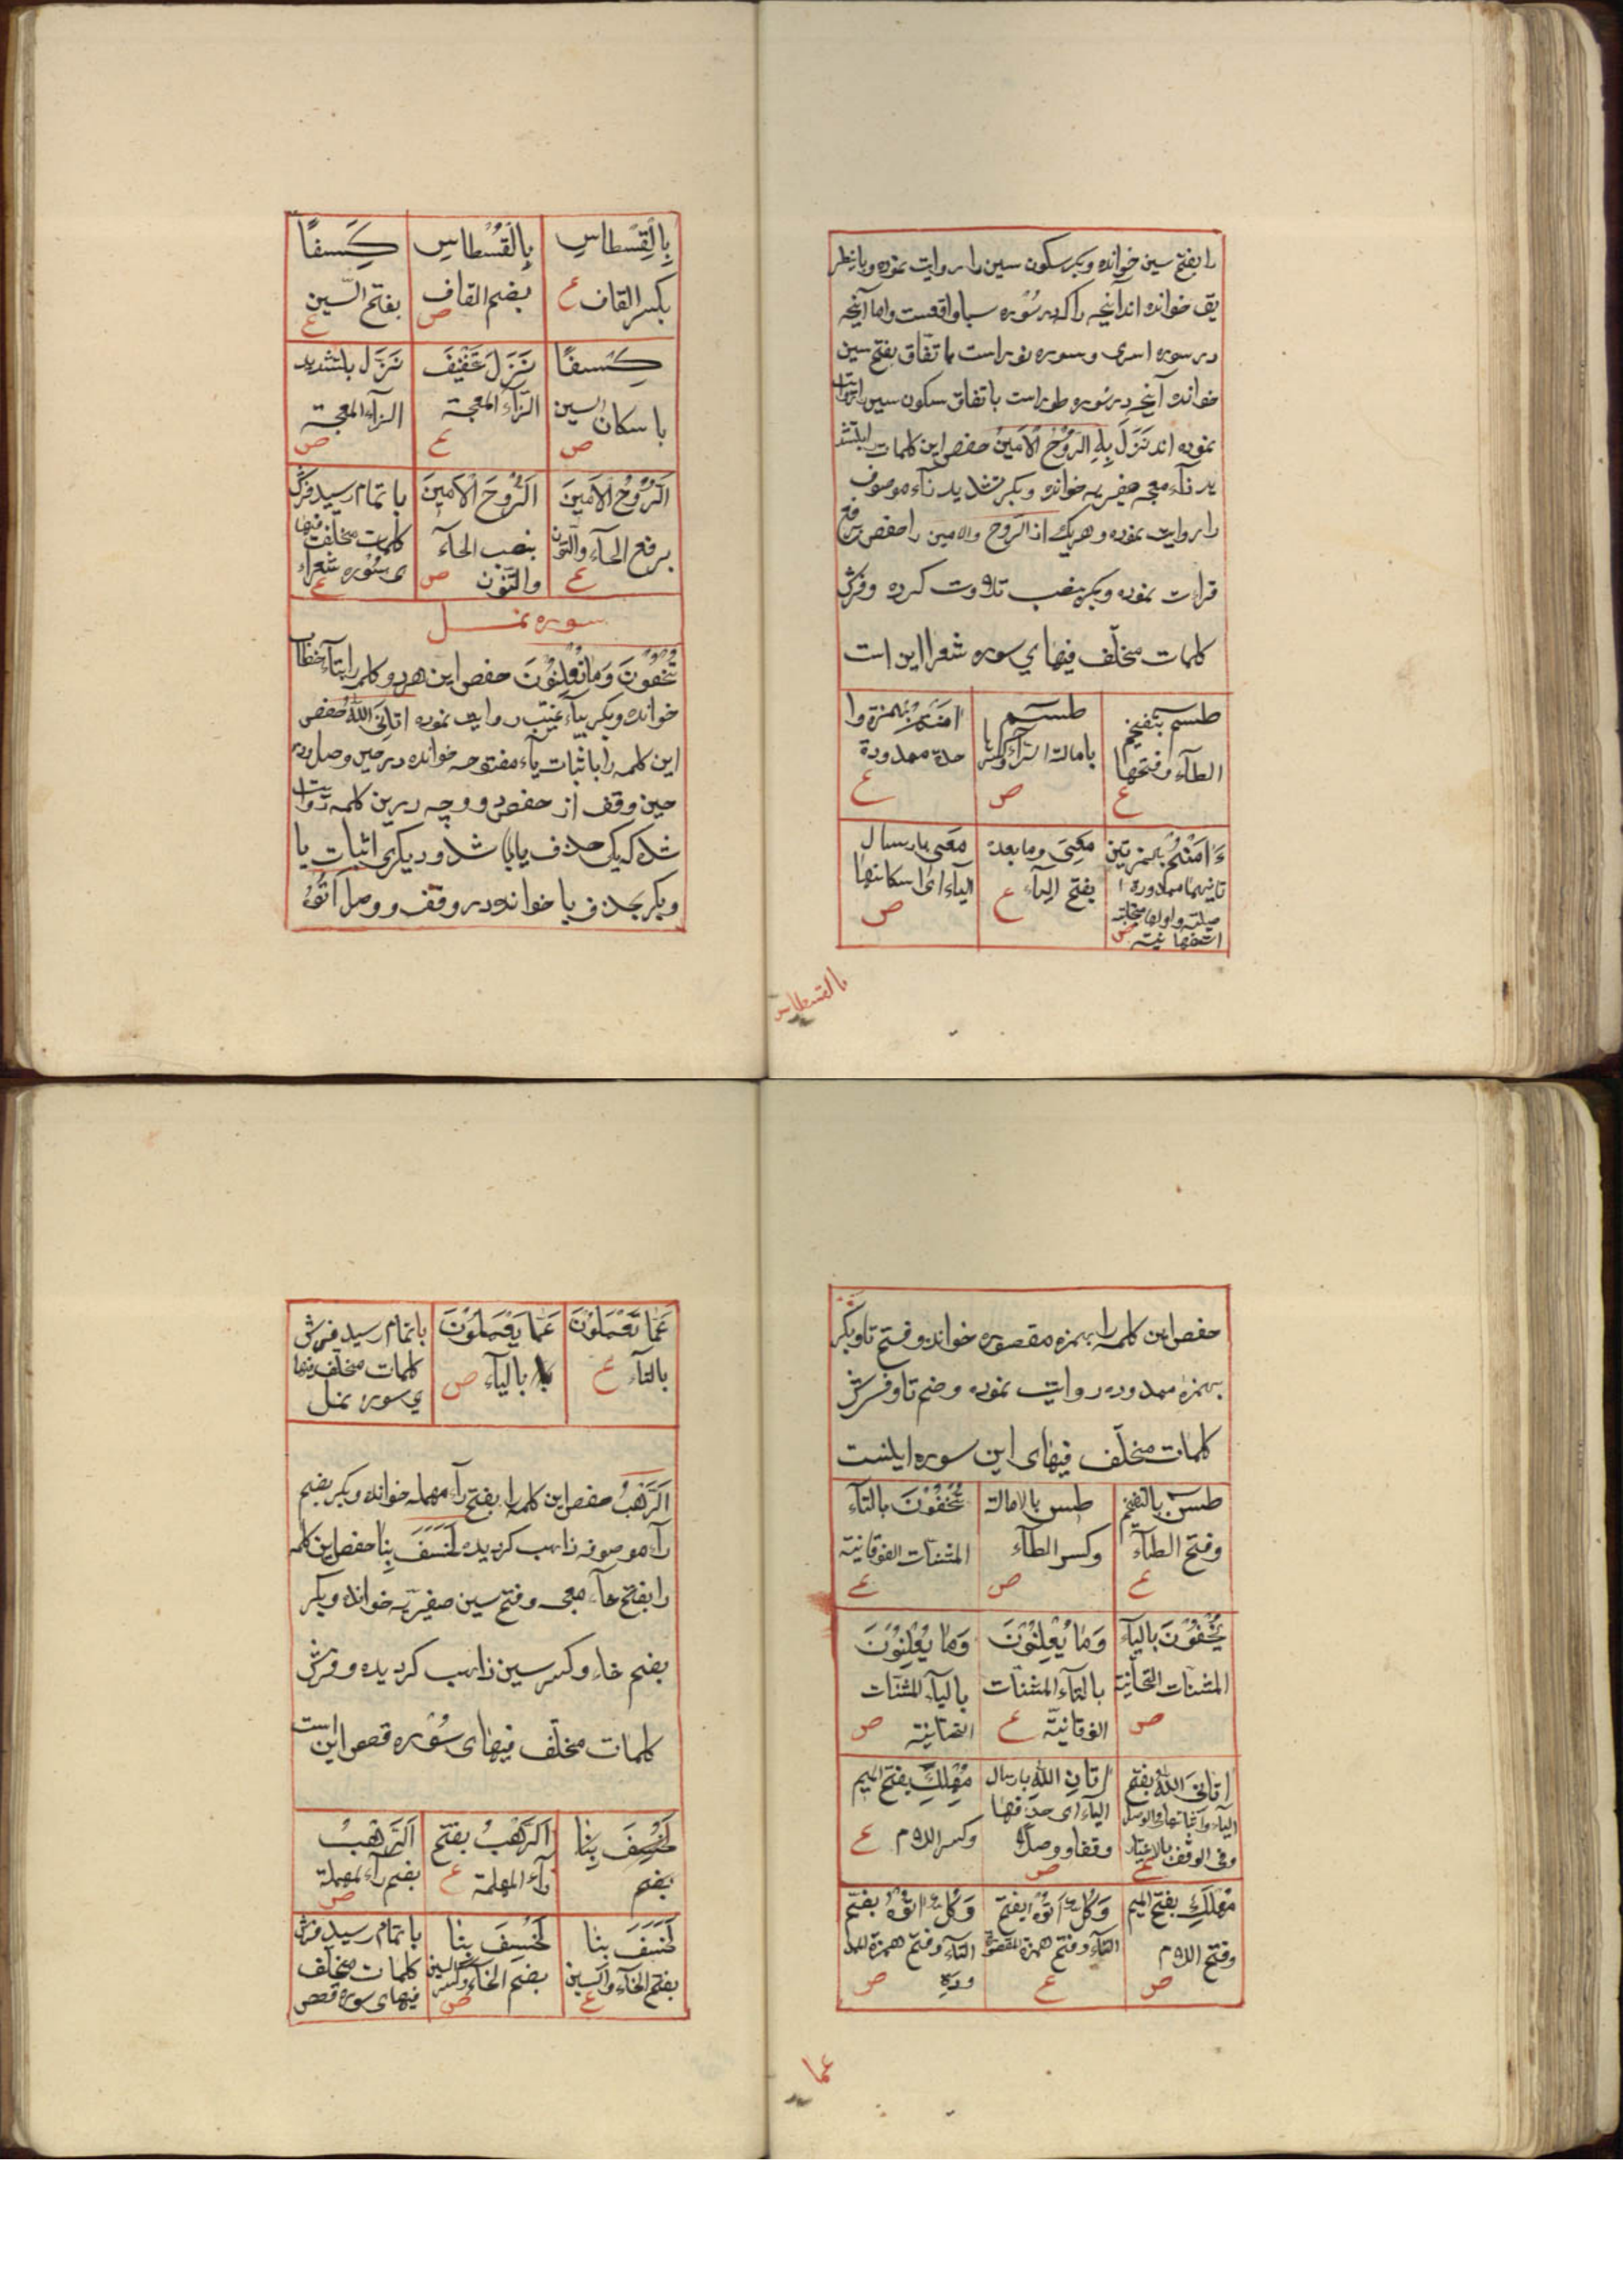 را بفتح سین خوانده وبکر سکون سین را روایت نموده وباینطر
یق خوانده اند آنچه را که در سُوره سبا واقعست واما آنچه
در سوره اسری وسوره نور است با تّفاق بفتح سین
خوانده آنچه در سوره طور است باتفاق سکون سین را روایت
نموده اند نَزَلَ بِهِ الرُّوحُ الْاَمِینُ حفص این کلمات را بتشد
ید زآء معجه صفیریه خوانده وبکر تشدید زآء موصوف
را روایت نموده وهریک از الرّوح والامین را حفص برفع
قراءت نموده وبکر بنصب تلاوت کرده وفرش
کلمات مختلف فیهای سوره شعرا این است
طسم بتفخیم
الطآء وفتحها
ع
طسم
بامالت الطآء وکسرها
ص
اٰمَنْتُمْ بهمزة وا
حدة ممدودة
ع
ءَاٰمَنْتُمْ بالهمزتین
ثانیهما ممدودة ا
صلیّة واولها مخفّفة
استفهامیّة
ص
مَعِیَ وما بعده
بفتح الیآء
ع
مَعی بارسال
الیاء ای اسکانها
ص
بالقسطاس
بِالْقِسْطاسِ
بکسر القاف
ع
بِالْقُسْطاسِ
بضم القاف
ص
کِسَفًا
بفتح السّین
ع
کِسْفًا
باسکان السین
ص
نَزَلَ بتخفیف
الزّآء المعجمة
ع
نَزَّل بتشدید
الزآء المعجمة
ص
اَلرُّوحُ الْاَمینُ
برفع الحآء والنّون
ع
اَلرُّوحَ الْاَمینَ
بنصب الحآء
والنّون
ص
باتمام رسید فرش
کلمات مختلف فیها
ی سُوره شعرآء
ع
سوره نمل
تُخْفُونَ وَمَا تُعْلِنُونَ حفص این هر دو کلمه را بتآء خطاب
خوانده وبکر بیآء غیبت روایت نموده اتانِیَ اللهُ حفص
این کلمه را باثبات یآء مفتوحه خوانده در حین وصل ودر
حین وقف از حفص دو وجه درین کلمه روایت
شده که یکی حذف یا باشد ودیگری اثبات یا
وبکر بحذف یا خوانده در وقف ووصل اَتَوْهُ
حفص این کلمه را بهمزه مقصوره خوانده وفتح تا وبکر
بهمزه ممدوده روایت نموده وضم تا وفرش
کلمات مختلف فیهای این سوره اینست
طس بالتفخیم
وفتح الطآء
ع
طس بالامالة
وکسر الطآء
ص
تُخْفُونَ بالتآء
المثنات الفوقانیّة
ع
یُخْفُونَ بالیآء
المثنات التحتانیة
ص
وَمٰا یُعْلِنُوْنَ
بالتآء المثنات
الفوقانیّة
ع
وَمٰا یُعْلِنُوْنَ
بالیآء المثنات
التحتانیة
ص
اتانِیَ اللهُ بفتح
الیآء واثباتها فی الوصل
وفی الوقف بالاختیار
ع
اتانِ الله بارسال
الیاء ای حذفها
وقفا ووصلًا
ص
مَهْلِکَ بفتح المیم
وکسر اللام
ع
مَهْلَکَ بفتح المیم
وفتح اللام
ص
وَکُلٌّ اَتَوْهُ بفتح
التآء وفتح همزة المقصورة
ع
وَکُلٌّ اٰتُوْهُ بضم
التآء وفتح همزة المد
ودة
ص
عما
عَمّا تَعْمَلُوْنَ
بالتآء
ع
عَمّا یَعْمَلُوْنَ
بالیآء
ص
باتمام رسید فرش
کلمات مختلف فیها
ی سوره نمل
اَلرَّهْبُ حفص این کلمه را بفتح رآء مهمله خوانده وبکر بضم
رآء موصوفه ذاهب کردیده لَخَسَفَ بِنٰا حفص این کلمه
را بفتح خاء معجمه وفتح سین صفیریّه خوانده وبکر
بضم خاء وکسر سین ذاهب کردیده وفرش
کلمات مختلف فیهای سُوره قصص این است
لَخُسِفَ بِنٰا
بضم
اَلرَّهْبُ بفتح
رآء المهملة
ع
اَلرُّهْبُ
بضم رآء مهملة
ص
لَخَسَفَ بِنٰا
بفتح الخآء والسین
ع
لَخُسِفَ بِنٰا
بضم الخآء وکسر السین
ص
باتمام رسید فرش
کلمات مختلف
فیهای سوره قصص